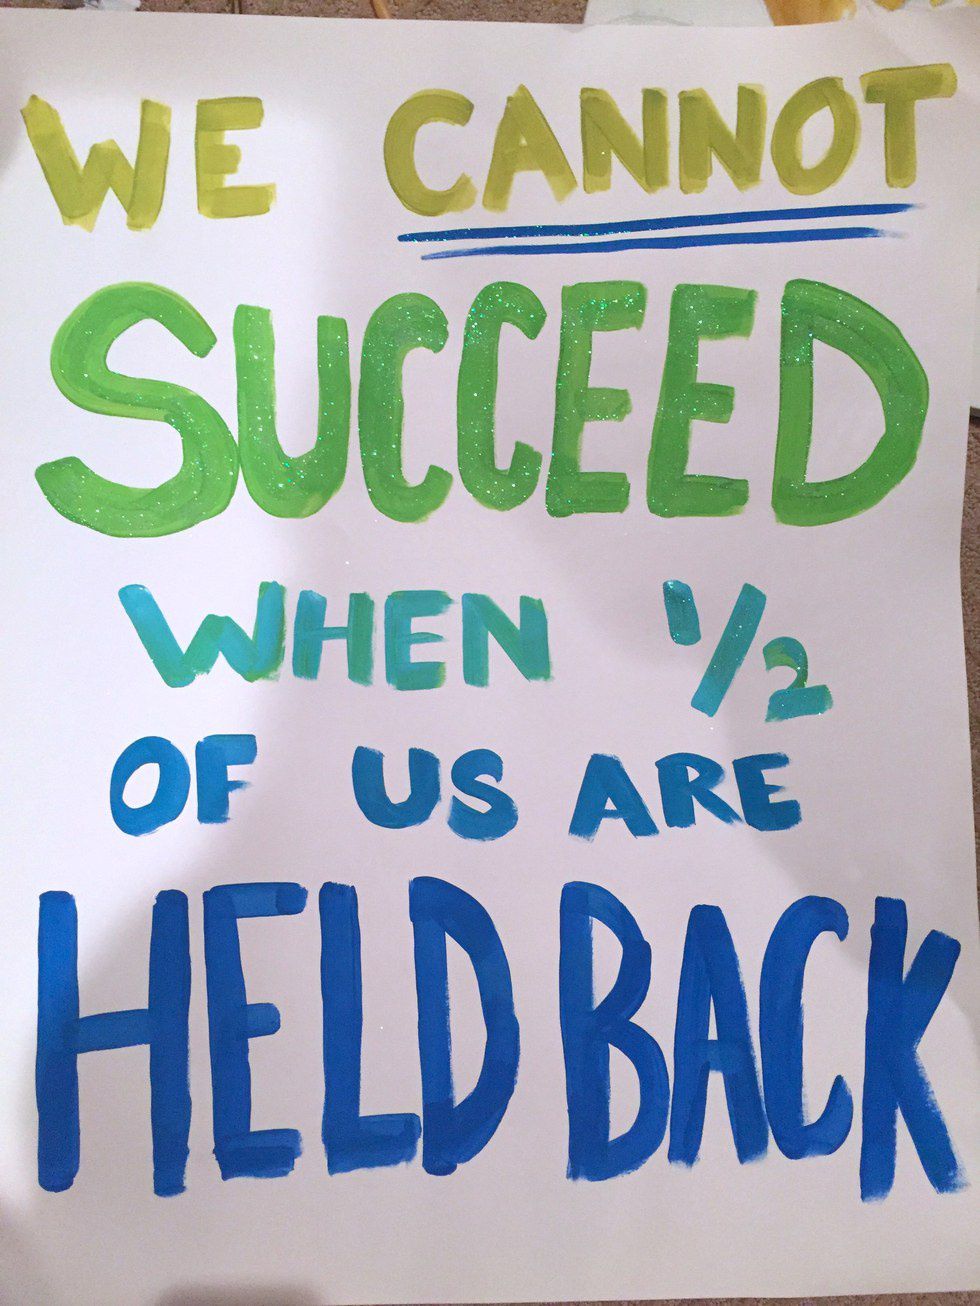 WE CANNOT
SUCCEED
WHEN 1/2
OF US ARE
HELD BACK